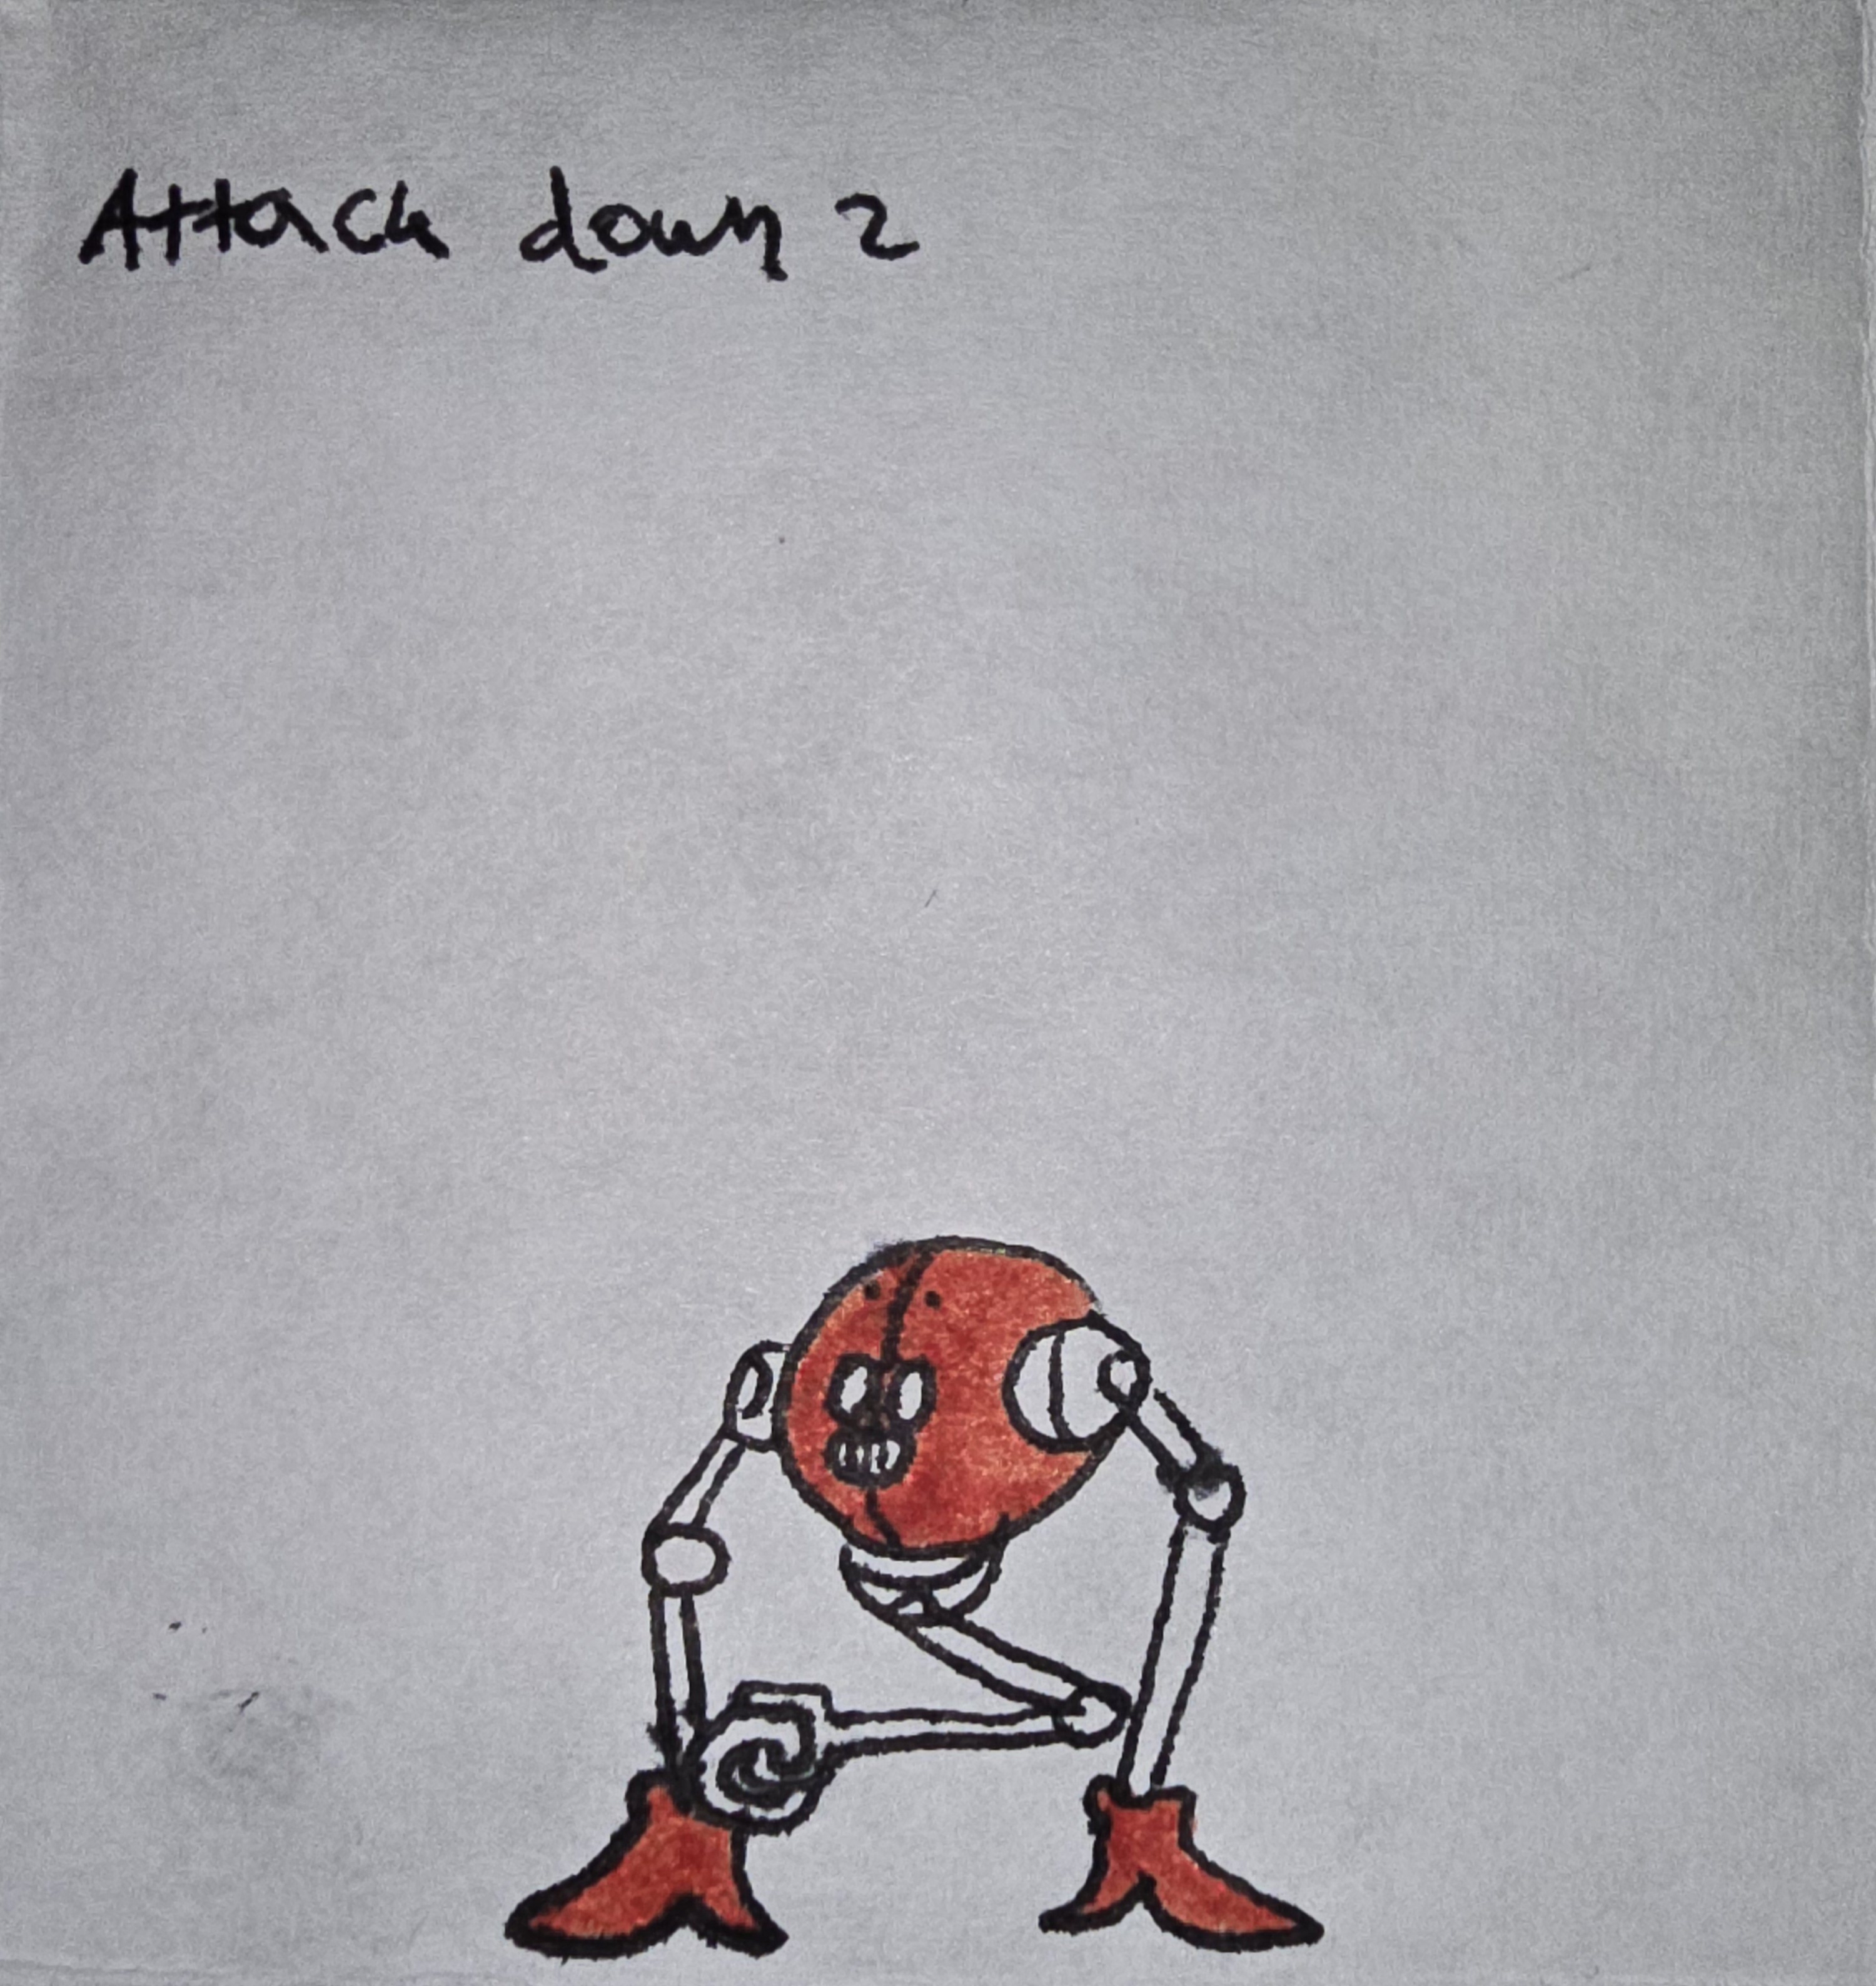 Attack down 2